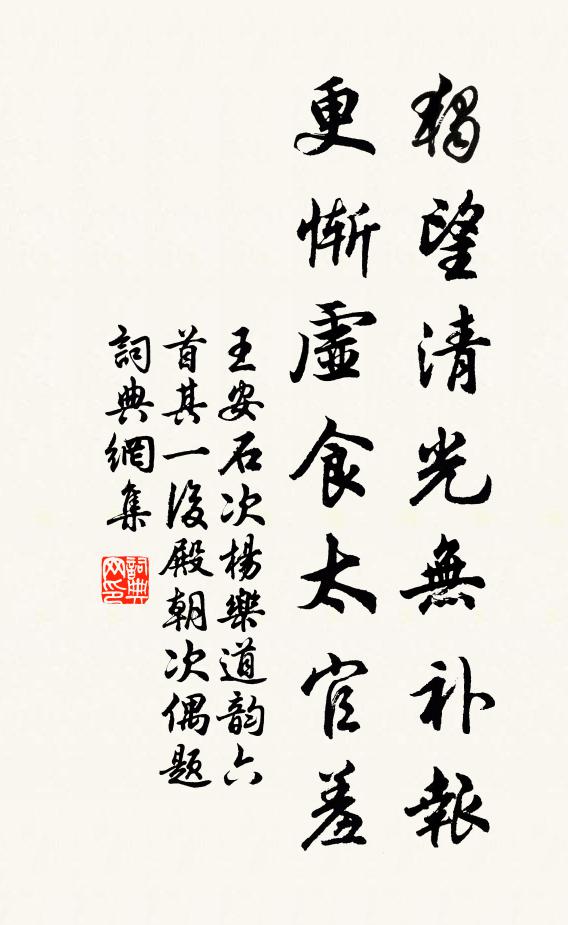 獨望清光無补報
更慚虛食太官羞
王安石次楊樂道韵六
首其一後殿朝次偶题
詞典網集
詞典
网印